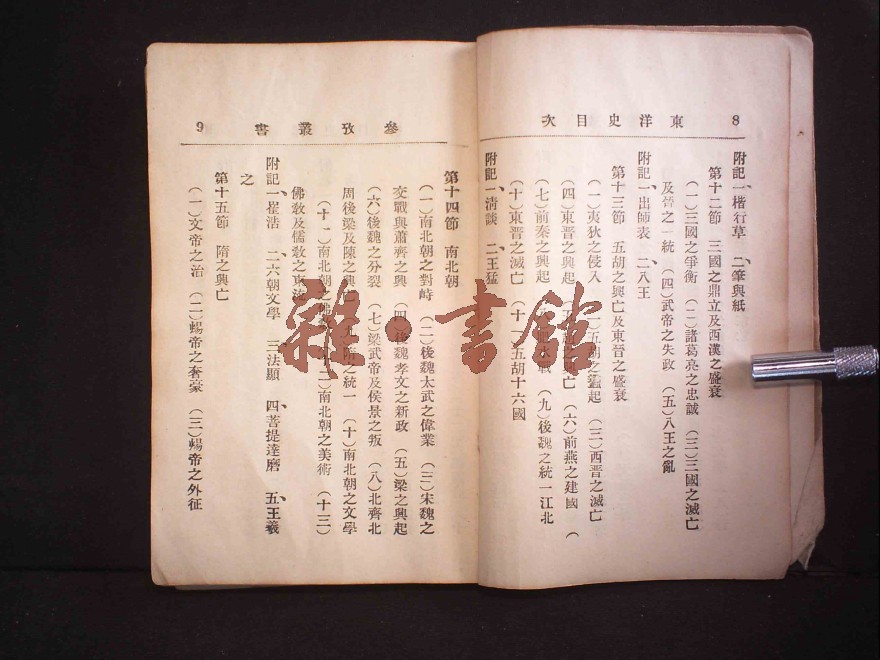 8 東洋史目次
附記一、楷行草 二、筆與紙
第十二節 三國之鼎立及西漢之盛衰
(一)三國之爭衡 (二)諸葛亮之忠誠 (三)三國之滅亡
及晉之一統 (四)武帝之失政 (五)八王之亂
附記一、出師表 二、八王
第十三節 五胡之興亡及東晉之盛衰
(一)夷狄之侵入 (二)五胡之蠭起 (三)西晉之滅亡
(四)東晉之興起 亡 (六)前燕之建國 (
(七)前秦之興起 (九)後魏之統一江北
(十)東晉之滅亡 (十一)五胡十六國
附記一、清談 二、王猛
參攷叢書 9
第十四節 南北朝
(一)南北朝之對峙 (二)後魏太武之偉業 (三)宋魏之
交戰與蕭齊之興 (四)後魏孝文之新政 (五)梁之興起
(六)後魏之分裂 (七)梁武帝及侯景之叛 (八)北齊北
周後梁及陳之興亡 (九)隋之統一 (十)南北朝之文學
(十一)南北朝之佛 (十二)南北朝之美術 (十三)
佛教及儒教之東
附記一、崔浩 二、六朝文學 三、法顯 四、菩提達磨 五、王羲
之
第十五節 隋之興亡
(一)文帝之治 (二)煬帝之奢豪 (三)煬帝之外征
雜·書館